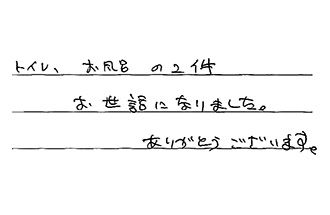 トイレ、お風呂の2件
お世話になりました。
ありがとうございます。